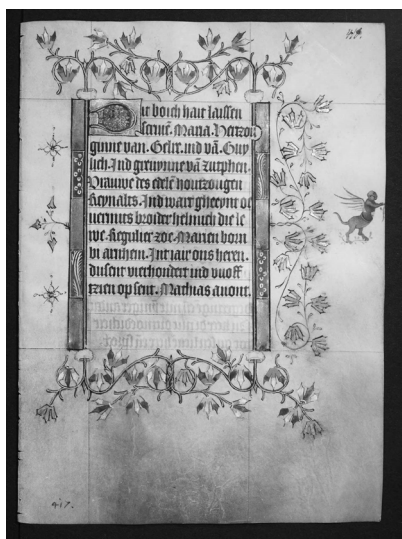 Dit boich hait laissen
scriuē. Maria. Hertzou
ginne van. Gelre. ind vā. Guy
lich. Ind greuynne vā zutphen.
Vrauwe des edelē houtzougen
Reynalts. Ind wart gheeynt o
uermits broder helmich die le
we. Regulier zoe. Marien born
bi arnhem. Int iair ons heren.
dusent vierhondert ind viiofft
tzien op sent. Mathias auont.
417.